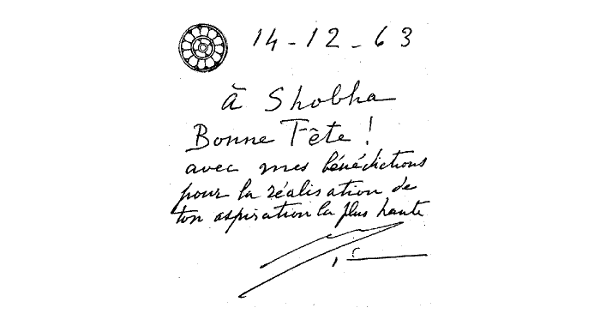 14-12-63
à Shobha
Bonne Fête !
avec mes bénédictions
pour la réalisation de
ton aspiration la plus haute